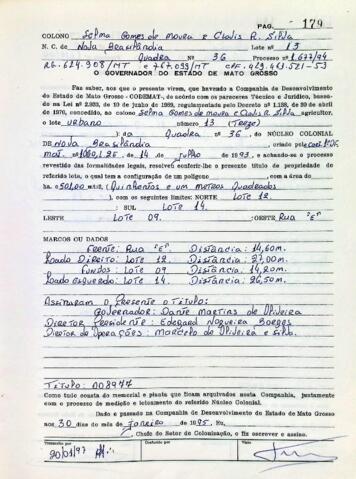 PAG. 179
COLONO Selma Gomes de Moura e Clovis R. Silva
N. C. de Nova Brasilândia Lote nº 13
Quadra nº 36 Processo 1.677/94
RG. 614.308/MT e 767.033/MT CPF. 429.463.521-53
O GOVERNADOR DO ESTADO DE MATO GROSSO
Faz saber, aos que a presente virem, que havendo a Companhia de Desenvolvimento
do Estado de Mato Grosso - CODEMAT, de acordo com os pareceres Técnico e Jurídico, basea-
dos na Lei nº 2.033, de 10 de junho de 1929, regulamentada pelo Decreto nº 1.138, de 30 de abril
de 1970, concedido, ao colono Selma Gomes de Moura e Clovis R. Silva agricultor,
o lote urbano número 13 (Treze)
) da Quadra nº 36. DO NÚCLEO COLONIAL
DE Nova Brasilândia criado pela
de 14 de Julho de 1993, e achando-se o processo
revestido das formalidades legais, resolveu conferir-lhe o presente título de propriedade do
referido lote, o qual tem a configuração de um polígono com a área de
ha 501,00 mts² (Quinhentos e um metros Quadrados
), com os seguintes limites: NORTE Lote 12.
: SUL Lote 14.
LESTE Lote 09. : OESTE Rua "E"
MARCOS OU DADOS
Frente: Rua "E" Distância: 14,60m.
Lado Direito: Lote 12. Distância: 27,00m.
Fundos: Lote 09. Distância: 14,20m.
Lado esquerdo: Lote 14. Distância: 26,50m.
Assinaram o Presente o Título:
Governador: Dante Martins de Oliveira
Diretor Presidente: Edegard Nogueira Borges
Diretor de Operações: Marcelo de Oliveira e Silva.
Título: 008977
Como tudo consta do memorial e planta que ficam arquivados nesta Companhia, juntamente
com o processo de medição e loteamento do referido Núcleo Colonial.
Dado e passado na Companhia de Desenvolvimento do Estado de Mato Grosso
aos 30 dias do mês de Janeiro de 1995. Eu,
Chefe do Setor de Colonização, o fiz escrever e assino.
Transcrito por Conferido por Visto
20/01/97